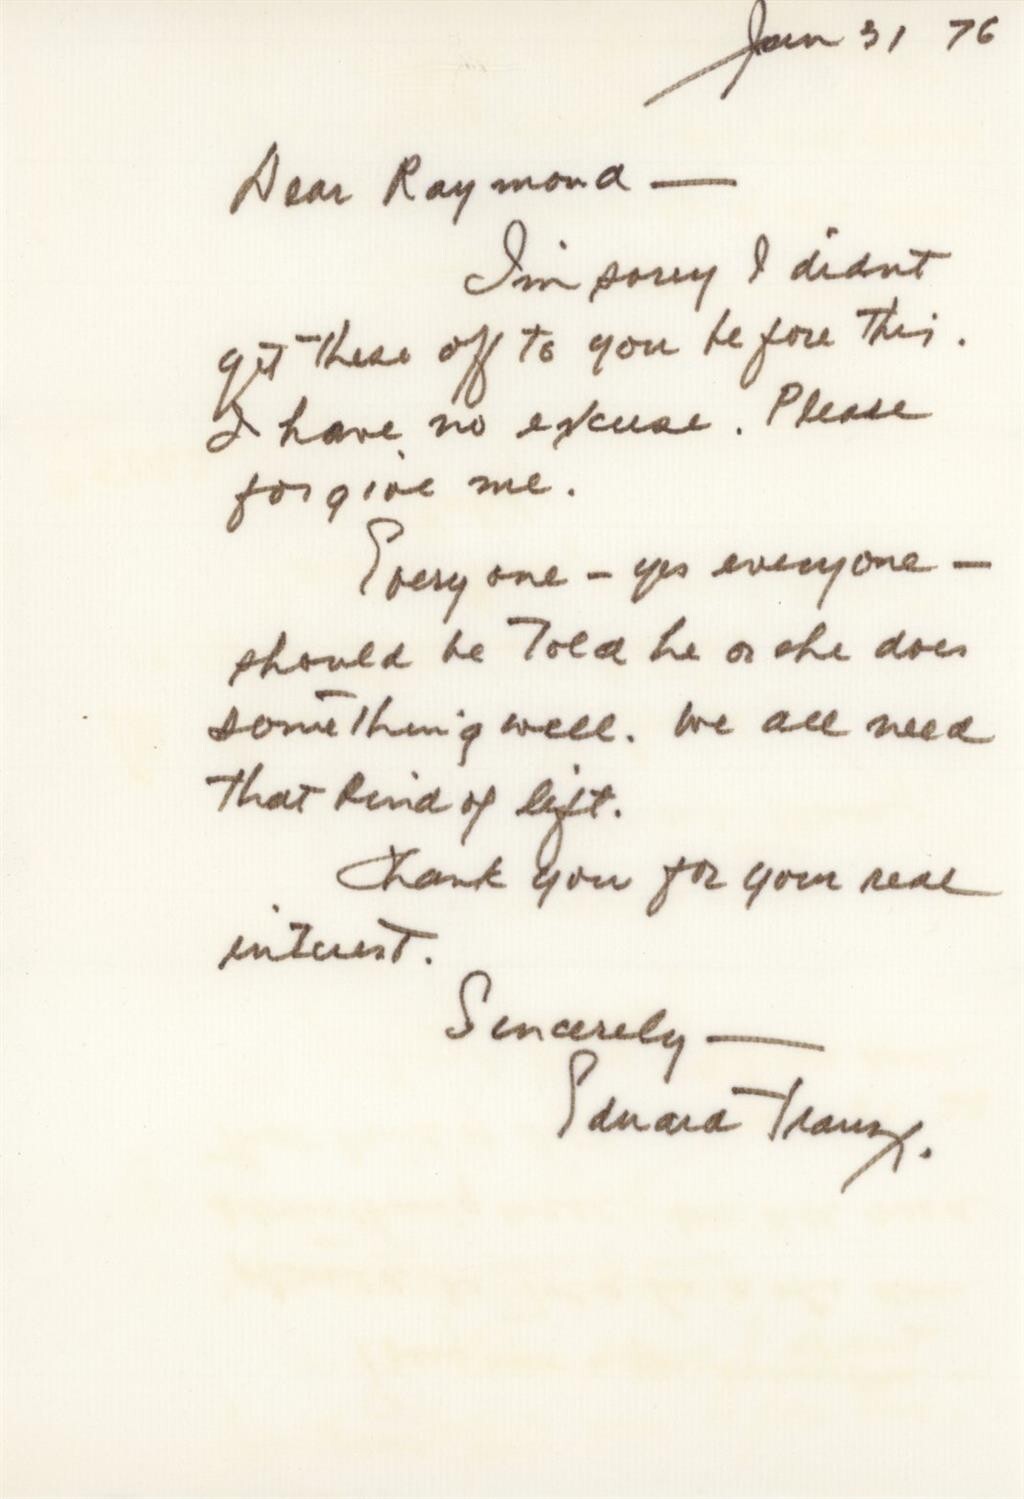 Jan 31 76
Dear Raymond —
I'm sorry I didnt
get these off to you before this.
I have no excuse. Please
forgive me.
Everyone – yes everyone –
should be told he or she does
something well. We all need
that kind of lift.
Thank you for your real
interest.
Sincerely —
Eduard Franz.